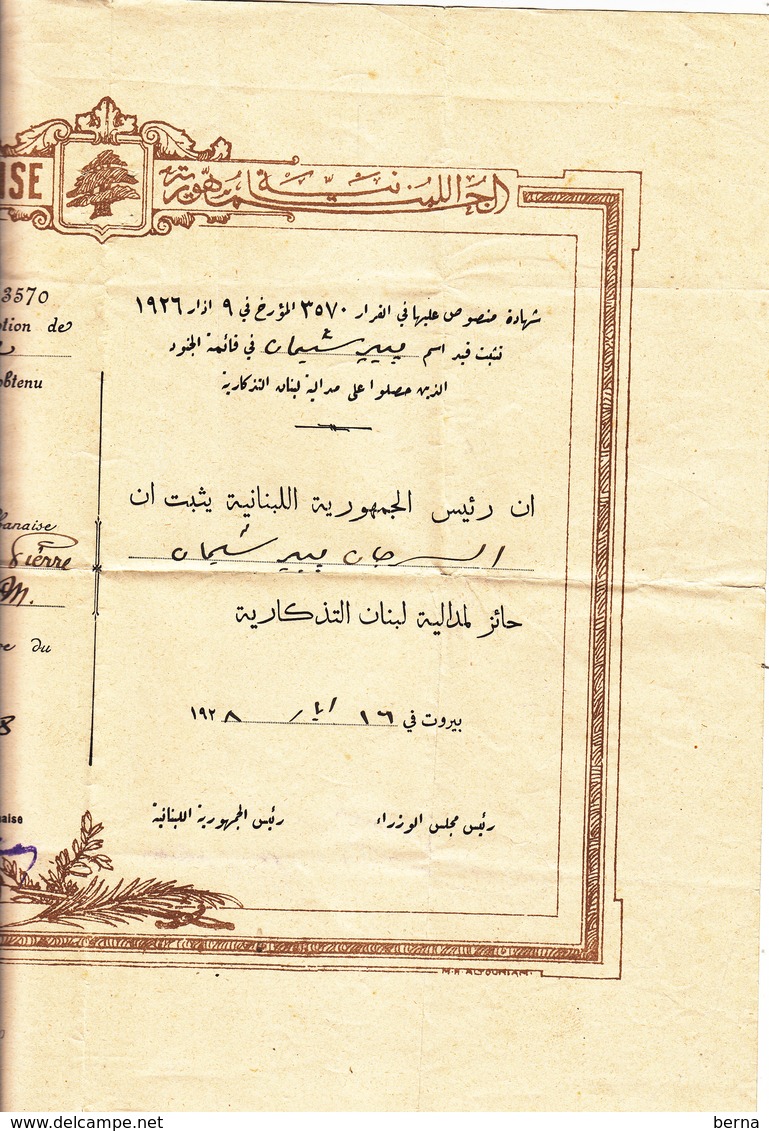 NSE
الجمهورية اللبنانية
3570
tion de
btenu
شهادة منصوص عليها في القرار ٣٥٧٠ المؤرخ في ٩ اذار ١٩٢٦
تثبت قيد اسم بيير شيمان في قائمة الجنود
الذين حصلوا على مدالية لبنان التذكارية
ان رئيس الجمهورية اللبنانية يثبت ان
السرجان بيير شيمان
حائز لمدالية لبنان التذكارية
banaise
Pierre
M.
e du
بيروت في ١٦ ايار ١٩٢٨
8
رئيس مجلس الوزراء رئيس الجمهورية اللبنانية
naise
M. H. ALTOUNIAN.
berna